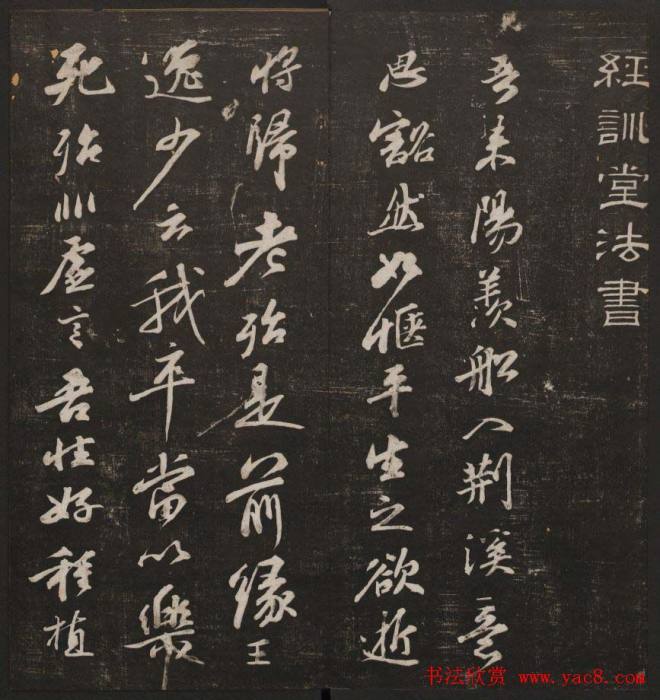 經訓堂法書
吾来陽羨船入荆溪意
思豁然如惬平生之欲逝
将歸老殆是前縁王
逸少云我卒當以樂
死殆非虚言吾性好種植
书法欣赏 www.yac8.com